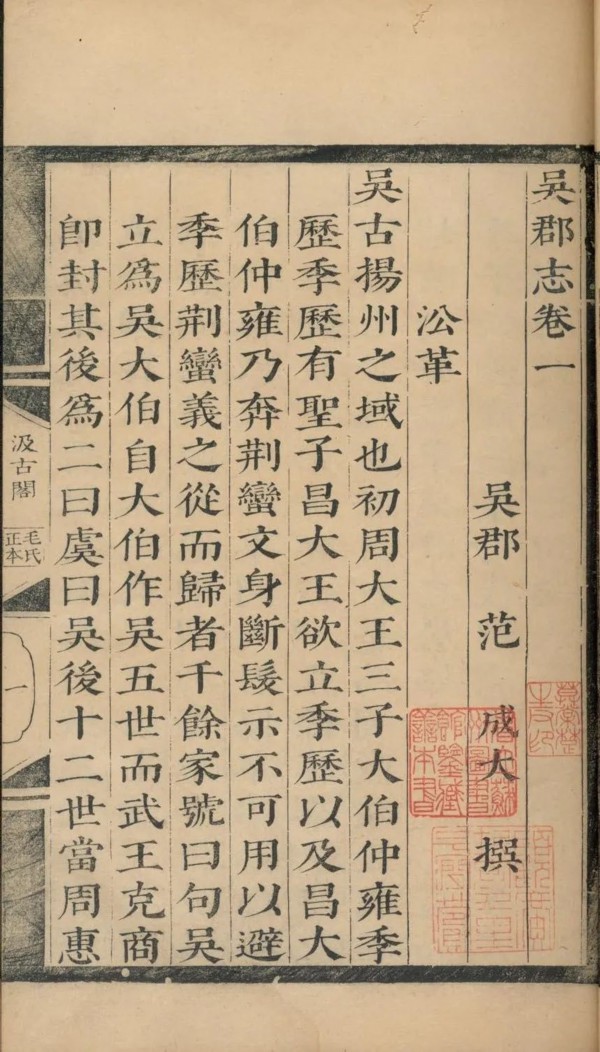 吳郡志卷一
吳郡 范 成大 撰
㳂革
吳古揚州之域也初周大王三子大伯仲雍季
歷季歷有聖子昌大王欲立季歷以及昌大
伯仲雍乃奔荆蠻文身斷髮示不可用以避
季歷荆蠻義之從而歸者千餘家號曰句吳
立爲吳大伯自大伯作吳五世而武王克商
卽封其後爲二曰虞曰吳後十二世當周惠
汲古閣
毛氏
正本
一